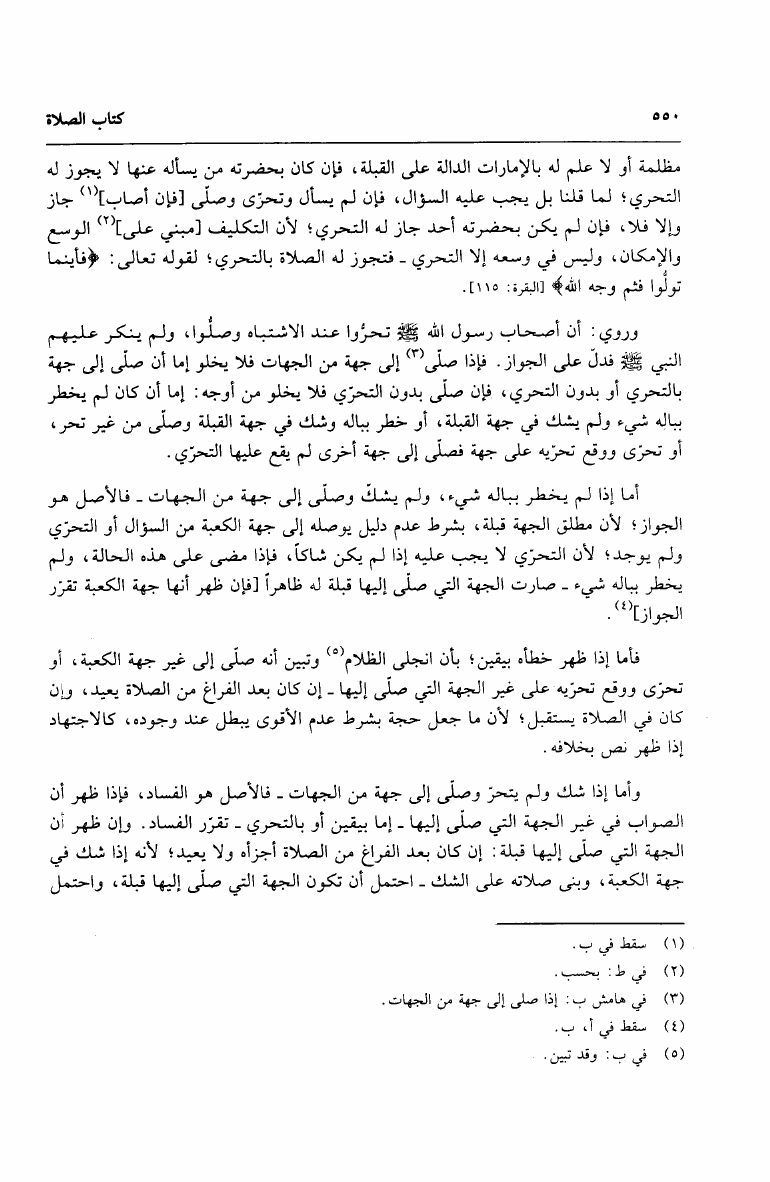 ٥٥٠ كتاب الصلاة
مظلمة أو لا علم له بالإمارات الدالة على القبلة، فإن كان بحضرته من يسأله عنها لا يجوز له
التحري؛ لما قلنا بل يجب عليه السؤال، فإن لم يسأل وتحرّى وصلّى [فإن أصاب](١) جاز
وإلا فلا، فإن لم يكن بحضرته أحد جاز له التحري؛ لأن التكليف [مبني على](٢) الوسع
والإمكان، وليس في وسعه إلا التحري ـ فتجوز له الصلاة بالتحري؛ لقوله تعالى: ﴿فأينما
تولُّوا فثم وجه الله﴾ [البقرة: ١١٥].
وروي: أن أصحاب رسول الله ﷺ تحرُّوا عند الاشتباه وصلُّوا، ولم ينكر عليهم
النبي ﷺ فدلّ على الجواز. فإذا صلّى(٣) إلى جهة من الجهات فلا يخلو إما أن صلّى إلى جهة
بالتحري أو بدون التحري، فإن صلّى بدون التحرّي فلا يخلو من أوجه: إما أن كان لم يخطر
بباله شيء ولم يشك في جهة القبلة، أو خطر بباله وشك في جهة القبلة وصلّى من غير تحر،
أو تحرّى ووقع تحرّيه على جهة فصلّى إلى جهة أخرى لم يقع عليها التحرّي.
أما إذا لم يخطر بباله شيء، ولم يشكّ وصلّى إلى جهة من الجهات ـ فالأصل هو
الجواز؛ لأن مطلق الجهة قبلة، بشرط عدم دليل يوصله إلى جهة الكعبة من السؤال أو التحرّي
ولم يوجد؛ لأن التحرّي لا يجب عليه إذا لم يكن شاكاً، فإذا مضى على هذه الحالة، ولم
يخطر بباله شيء ـ صارت الجهة التي صلّى إليها قبلة له ظاهراً [فإن ظهر أنها جهة الكعبة تقرّر
الجواز](٤).
فأما إذا ظهر خطأه بيقين؛ بأن انجلى الظلام(٥) وتبين أنه صلّى إلى غير جهة الكعبة، أو
تحرّى ووقع تحرّيه على غير الجهة التي صلّى إليها ـ إن كان بعد الفراغ من الصلاة يعيد، وإن
كان في الصلاة يستقبل؛ لأن ما جعل حجة بشرط عدم الأقوى يبطل عند وجوده، كالاجتهاد
إذا ظهر نص بخلافه.
وأما إذا شك ولم يتحرّ وصلّى إلى جهة من الجهات ـ فالأصل هو الفساد، فإذا ظهر أن
الصواب في غير الجهة التي صلّى إليها ـ إما بيقين أو بالتحري ـ تقرّر الفساد. وإن ظهر أن
الجهة التي صلّى إليها قبلة: إن كان بعد الفراغ من الصلاة أجزأه ولا يعيد؛ لأنه إذا شك في
جهة الكعبة، وبنى صلاته على الشك ـ احتمل أن تكون الجهة التي صلّى إليها قبلة، واحتمل
(١) سقط في ب.
(٢) في ط: بحسب.
(٣) في هامش ب: إذا صلى إلى جهة من الجهات.
(٤) سقط في أ، ب.
(٥) في ب: وقد تبين.